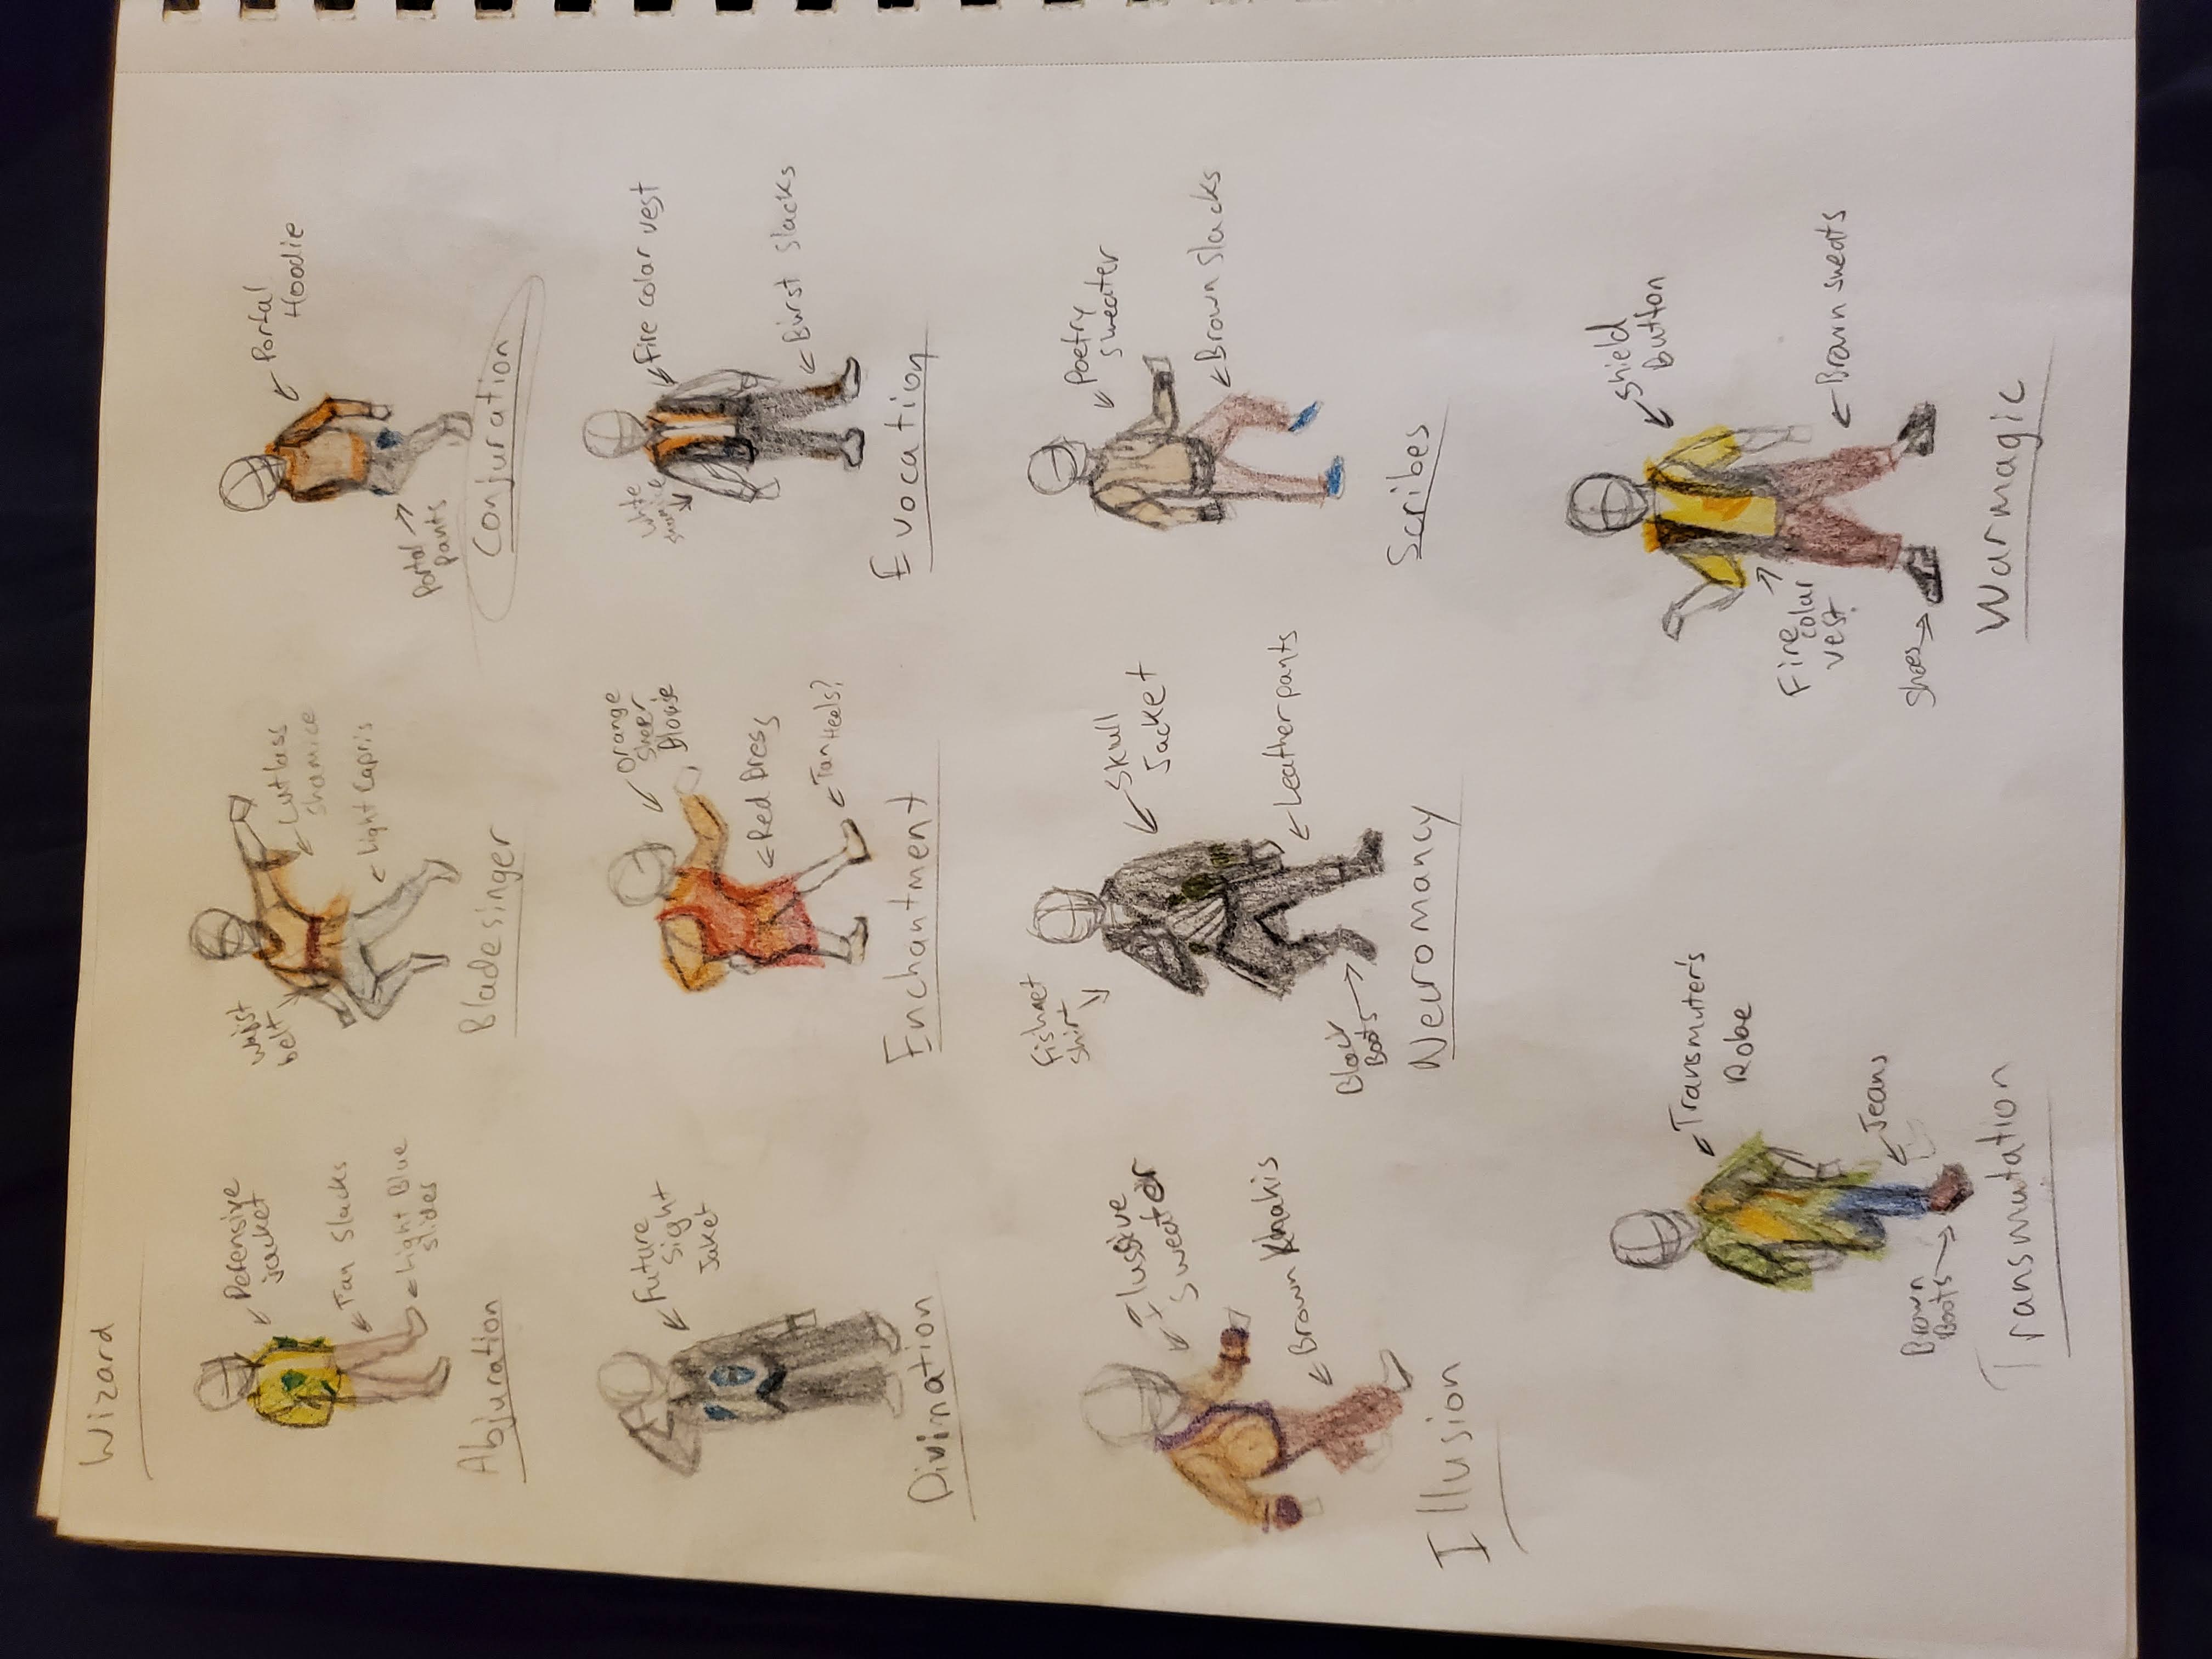 Wizard
Defensive
jacket
Tan Slacks
Light Blue
slides
Abjuration
Waist
belt
Cutlass
Shamice
Light Capris
Bladesinger
Portal
Hoodie
Portal
pants
Conjuration
Future
Sight
Jaket
Divination
Orange
Sheer
Blouse
Red Dress
Tan Heels?
Enchantment
White
shamice
Fire colar vest
Burst Slacks
Evocation
Ilussive
Sweater
Brown Khakis
Illusion
Fishnet
Shirt
Skull
Jacket
Leather pants
Black
Boots
Necromancy
Poetry
sweater
Brown Slacks
Scribes
Transmuter's
Robe
Jeans
Brown
Boots
Transmutation
Shield
Button
Fire
colar
vest
Brown sweats
Shoes
Warmagic